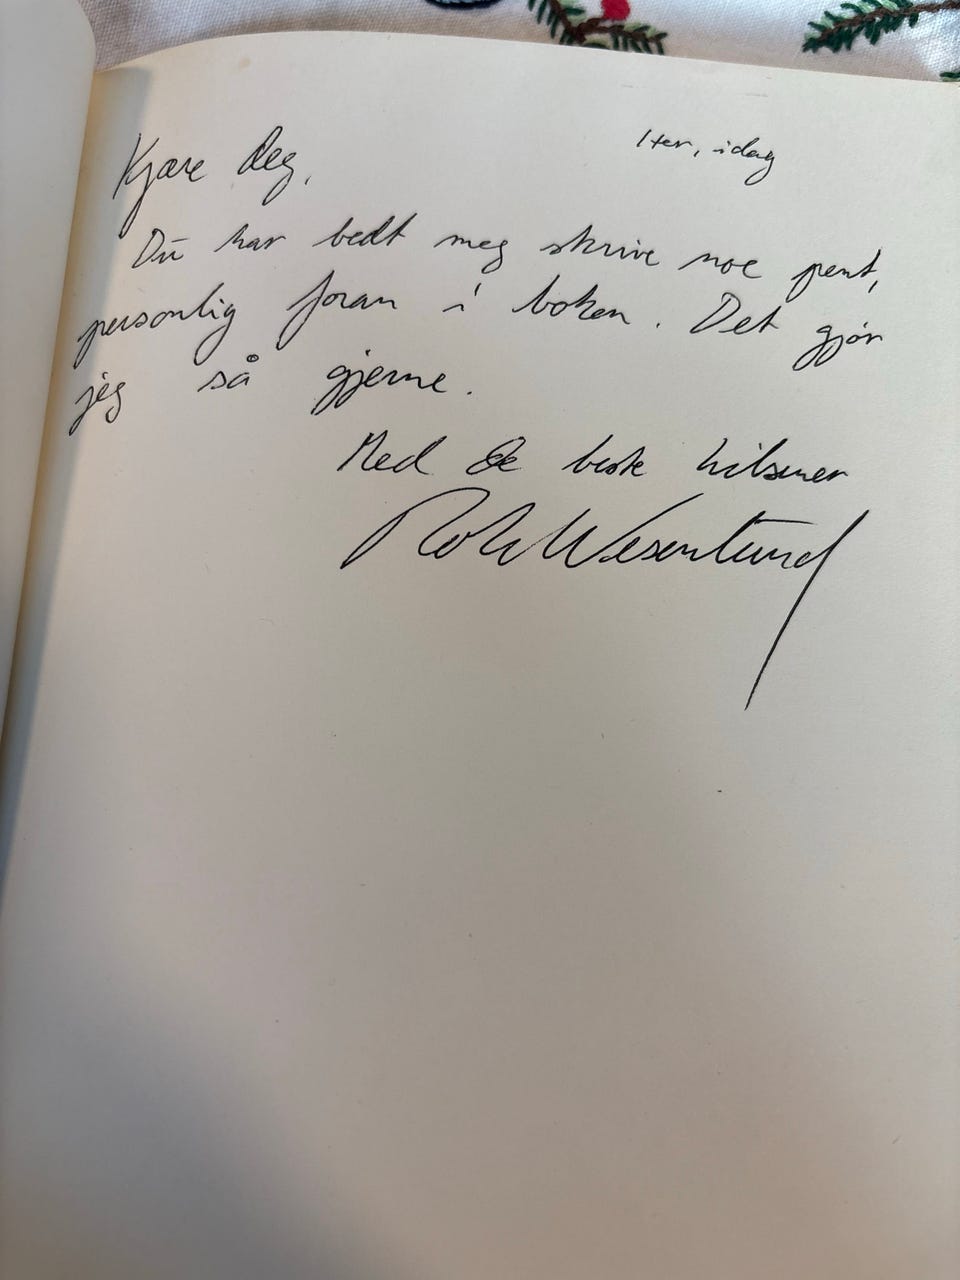 Her, idag
Kjære deg,
Du har bedt meg skrive noe pent,
personlig foran i boken. Det gjør
jeg så gjerne.
Med de beste hilsener
Rolv Wesenlund